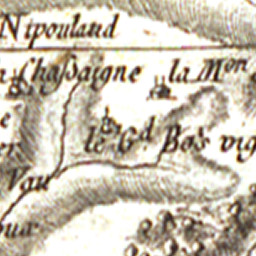 Nipoulaud
Chassaigne la Mon
le Gd Bos vig
Vau